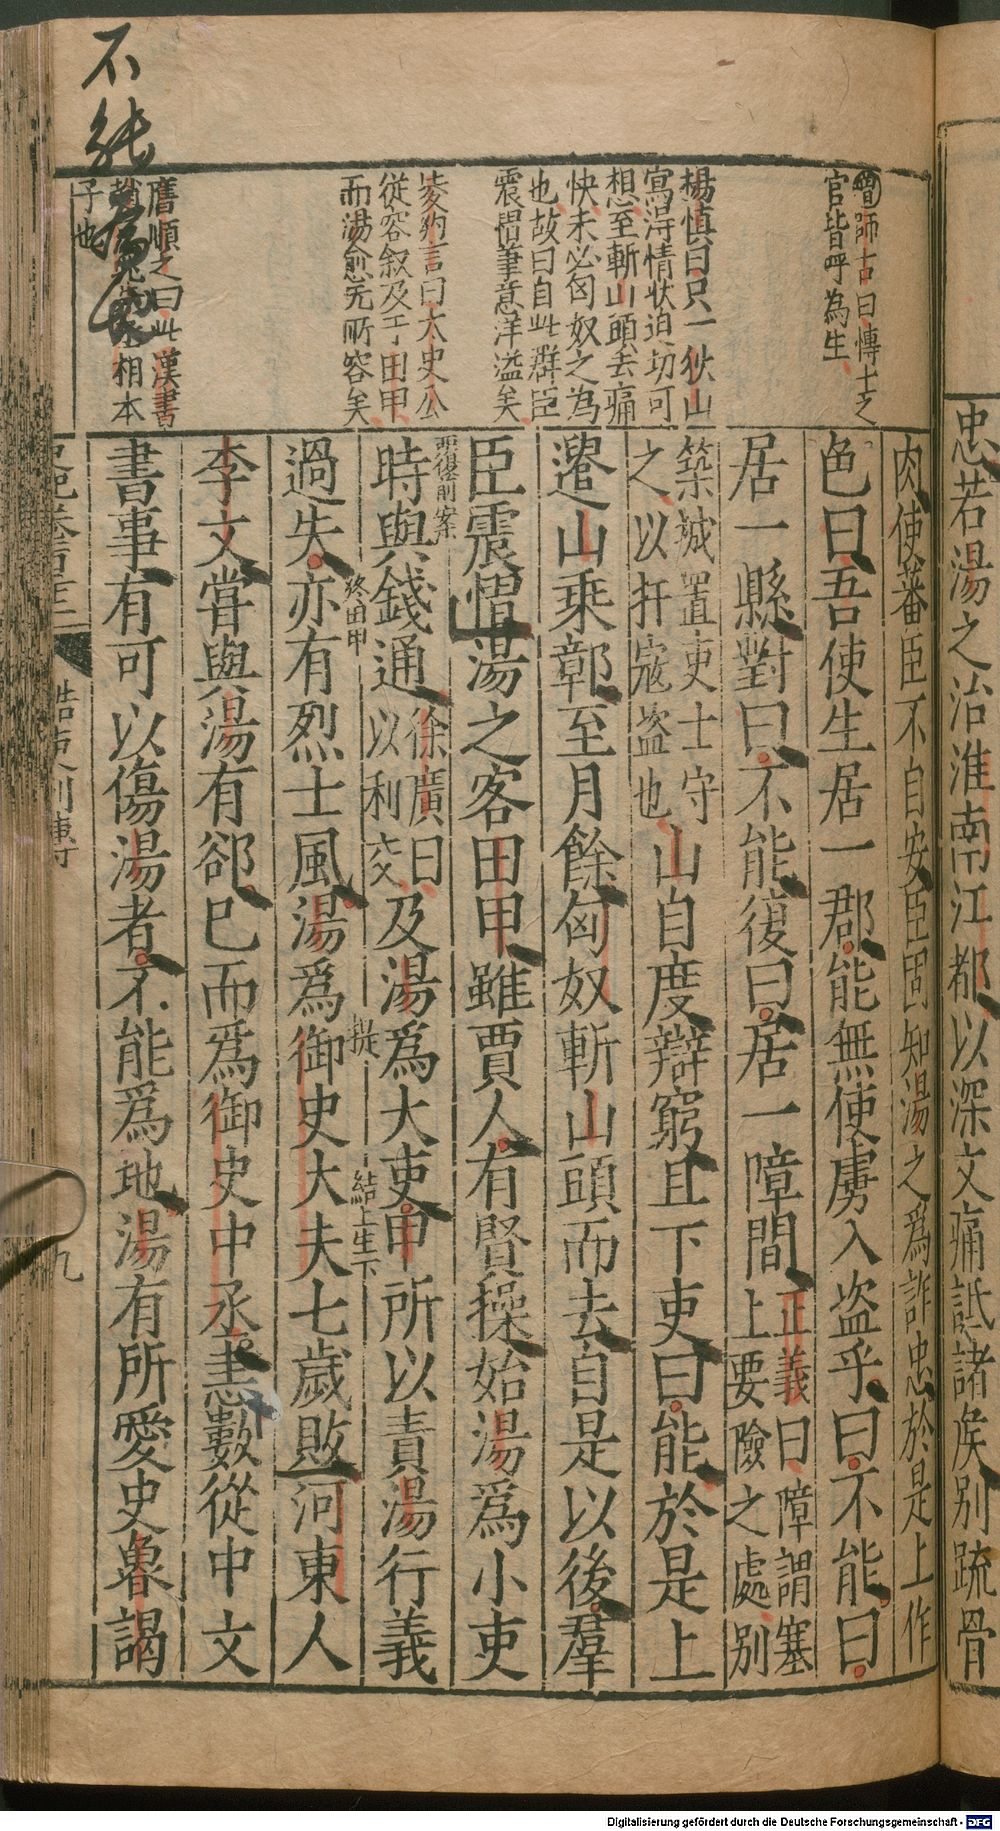 忠若湯之治淮南江都以深文痛詆諸侯別疏骨
肉使蕃臣不自安臣固知湯之爲詐忠於是上作
色曰吾使生居一郡能無使虜入盗乎曰不能曰
居一縣對曰不能復曰居一障間正義曰障謂塞
上要險之處別
築城置吏士守
之以扞寇盗也山自度辯窮且下吏曰能於是上
遣山乗鄣至月餘匈奴斬山頭而去自是以後羣
臣震慴湯之客田甲雖賈人有賢操始湯爲小吏
時與錢通徐廣曰
以利交及湯爲大吏甲所以責湯行義
過失亦有烈士風湯爲御史大夫七歲敗河東人
李文嘗與湯有郤已而爲御史中丞恚數從中文
書事有可以傷湯者不能爲地湯有所愛史魯謁
師古曰博士之
官皆呼為生
楊慎曰只一狄山
寫得情狀迫切可
想至斬山頭去痛
快未必匈奴之為
也故曰自此群臣
震慴筆意洋溢矣
凌約言曰太史公
從容叙及于田甲
而湯愈无所容矣
順之曰此漢書
相本
子也
要復前案
終田甲
提
結上生下
不能
九
Digitalisierung gefördert durch die Deutsche Forschungsgemeinschaft - DFG